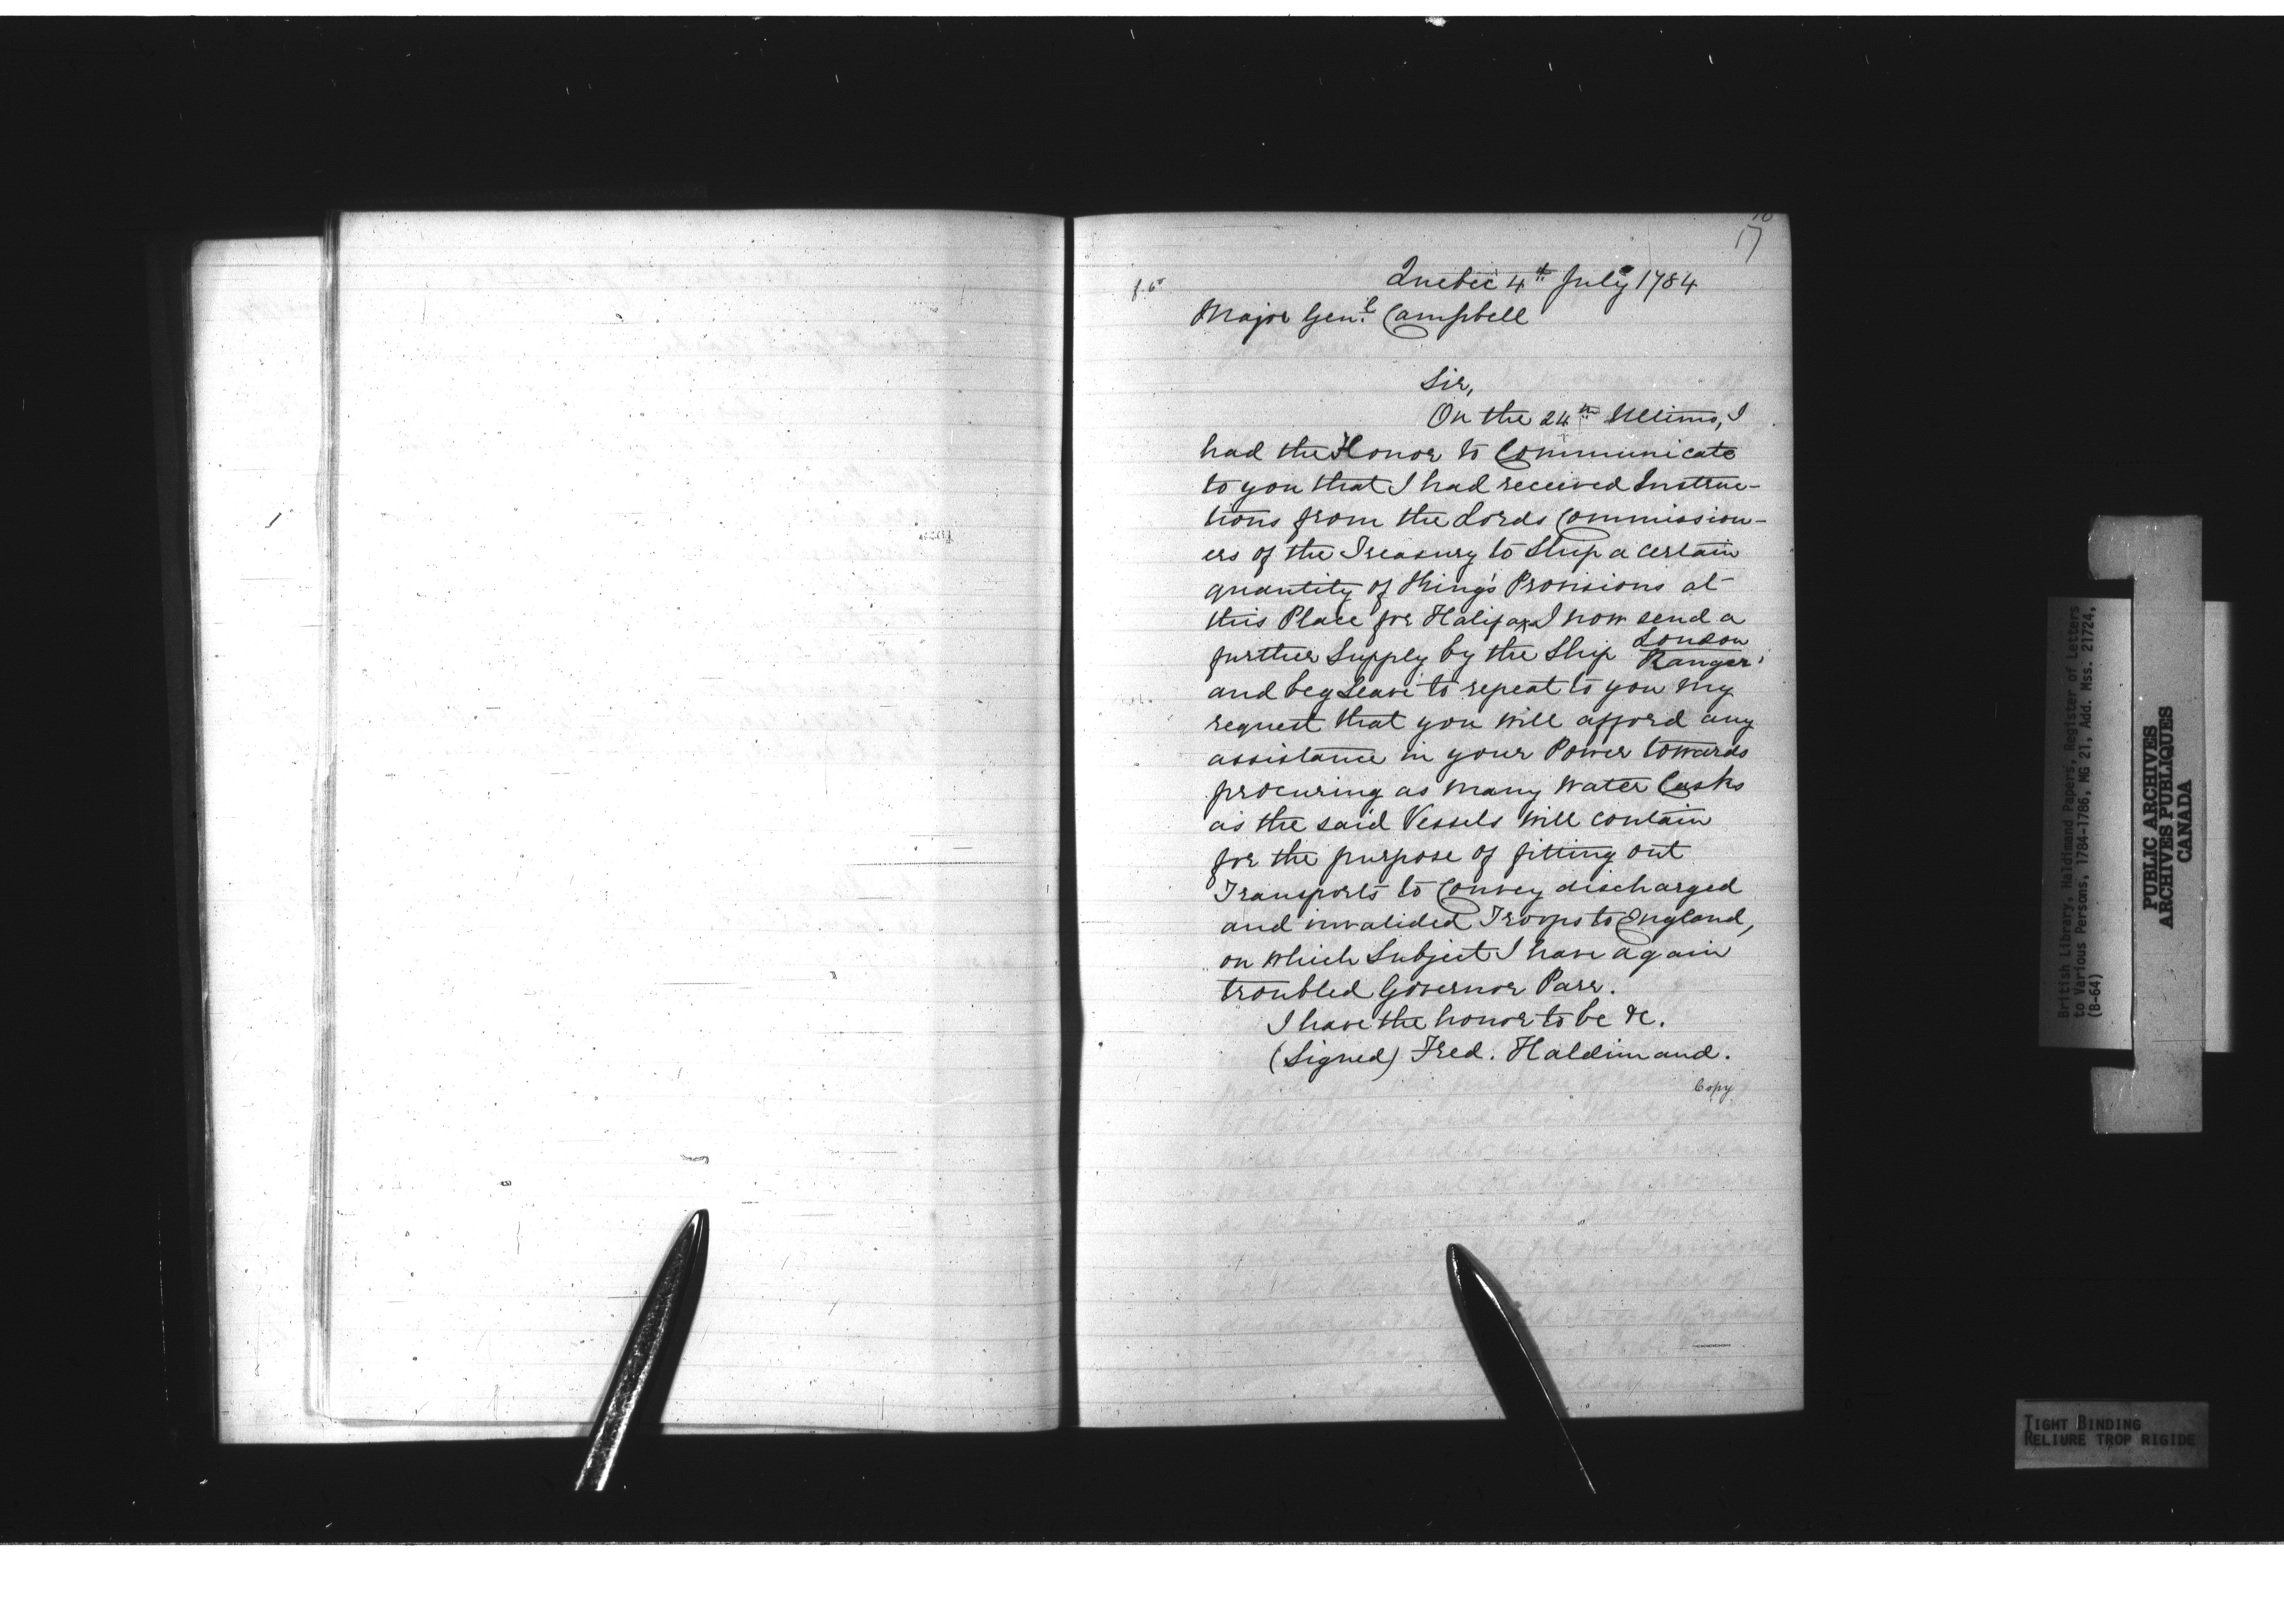 17
f. 6
Quebec 4th July 1784
Major Genl. Campbell
Sir,
On the 24th Ultimo, I
had the Honor to Communicate
to you that I had received Instruc-
tions from the Lords Commission-
ers of the Treasury to Ship a certain
quantity of King's Provisions at
this Place for Halifax I now send a
further Supply by the Ship London
Ranger,
and beg Leave to repeat to you my
request that you will afford any
assistance in your Power towards
procuring as many Water Casks
as the said Vessels will contain
for the purpose of fitting out
Transports to Convey discharged
and invalided Troops to England,
on which Subject I have again
troubled Governor Parr.
I have the honor to be &c.
(Signed) Fred. Haldimand.
Copy
British Library, Haldimand Papers, Register of Letters
to Various Persons, 1784-1786, MG 21, Add. Mss. 21724,
(B-64)
PUBLIC ARCHIVES
ARCHIVES PUBLIQUES
CANADA
TIGHT BINDING
RELIURE TROP RIGIDE